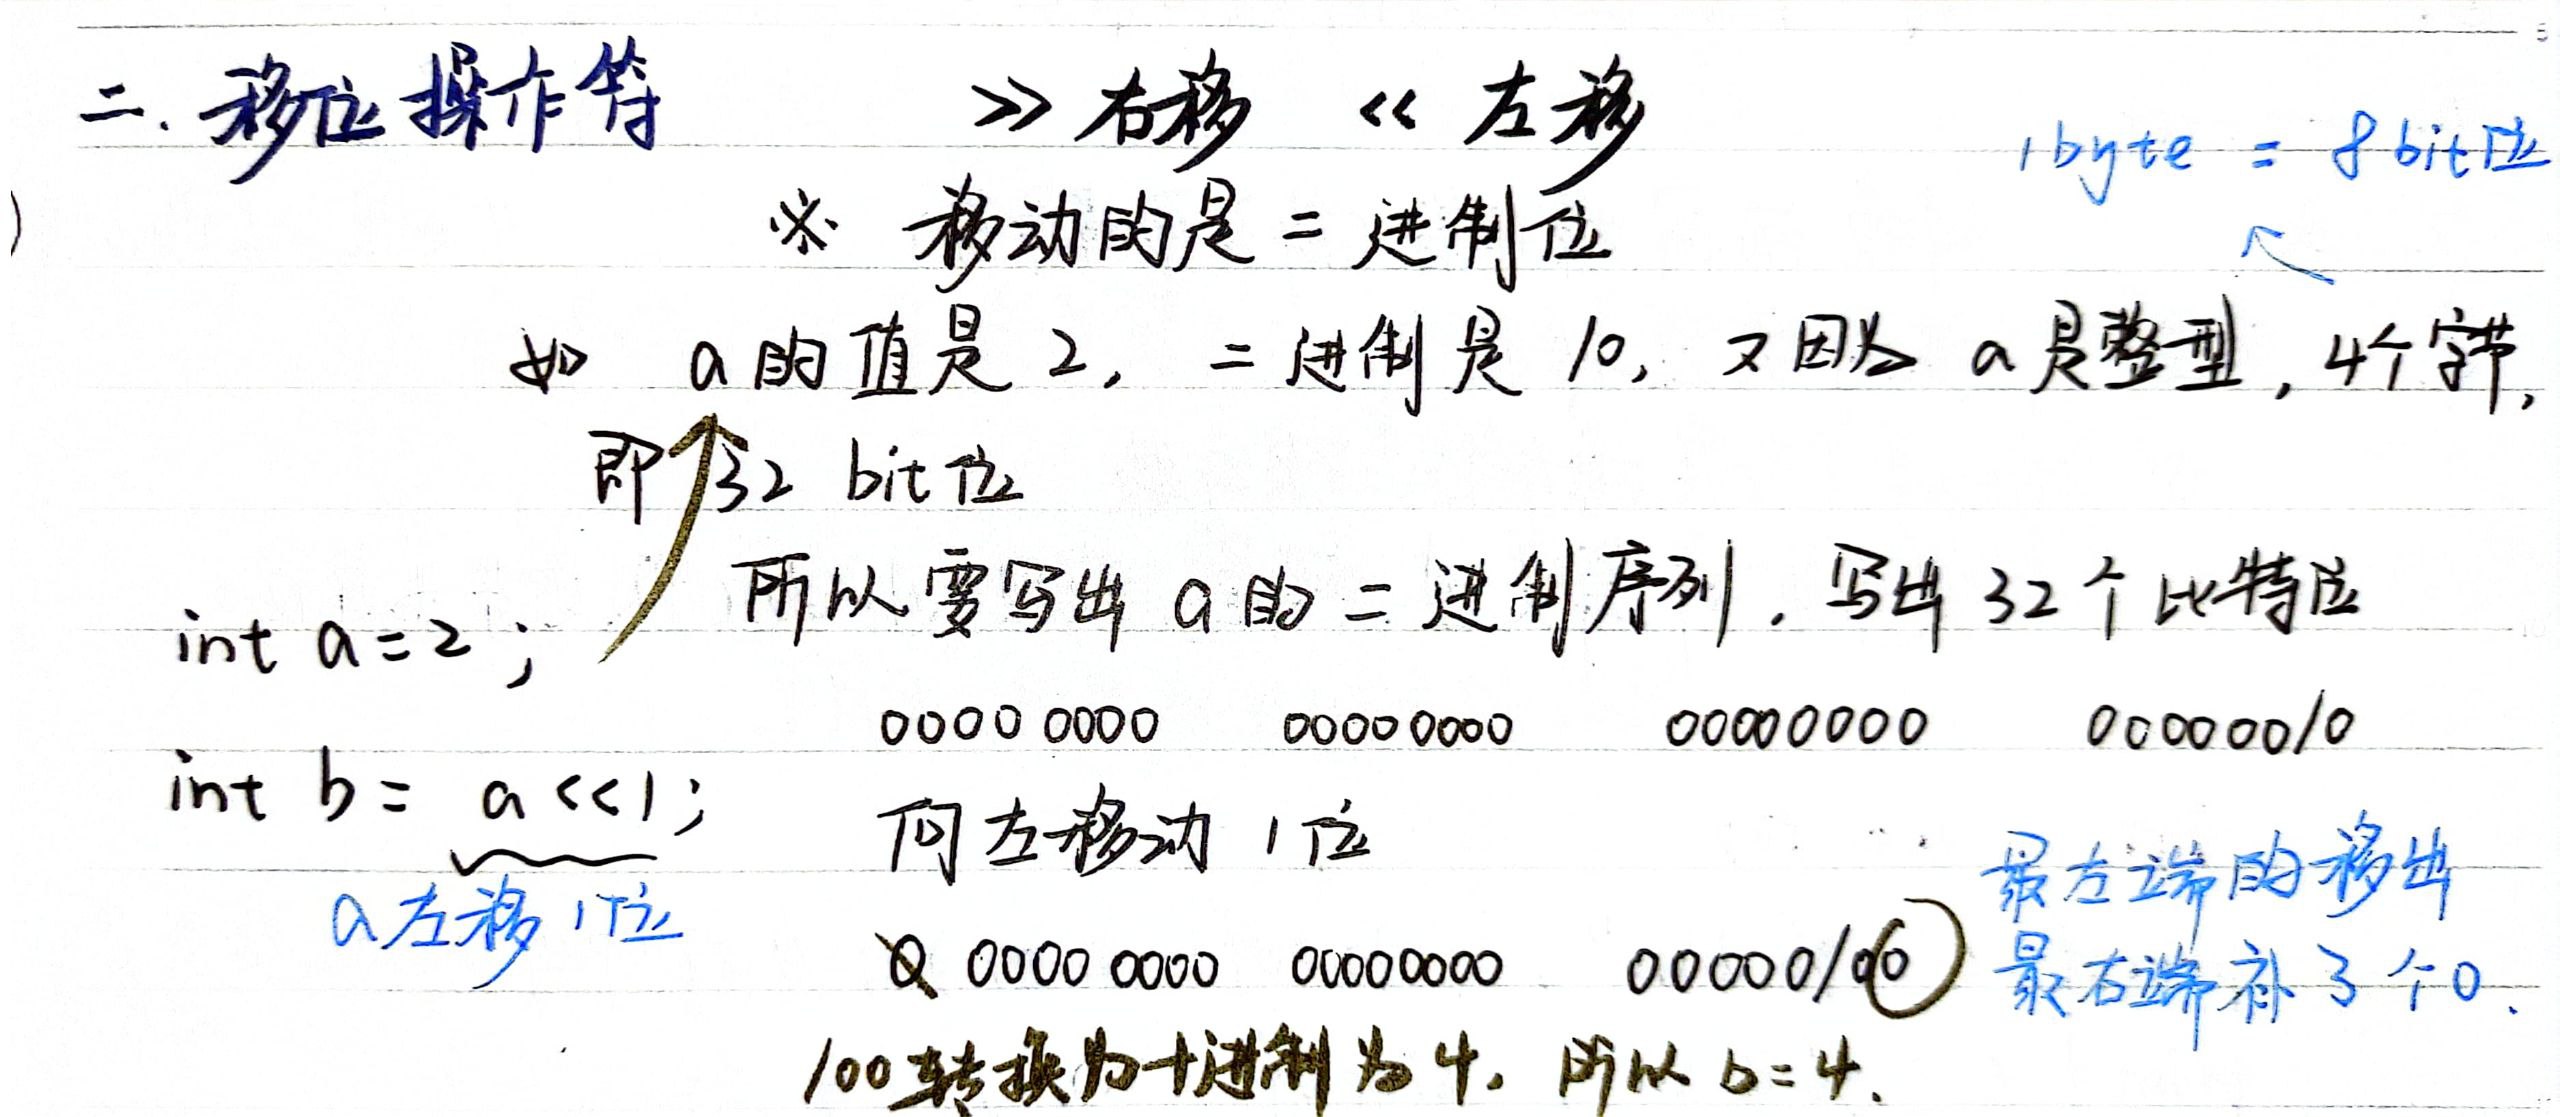 二. 移位操作符 >> 右移 << 左移
1byte = 8bit位
※ 移动的是二进制位
如 a的值是2, 二进制是10, 又因为 a是整型, 4个字节,
即32 bit位
所以需写出 a的二进制序列. 写出32个比特位
int a=2;
0000 0000 00000000 00000000 00000010
int b= a<<1;
向左移动1位
a左移1位
最左端的移出
0 0000 0000 00000000 00000100
最右端补了个0.
100转换为十进制为4. 所以 b=4.